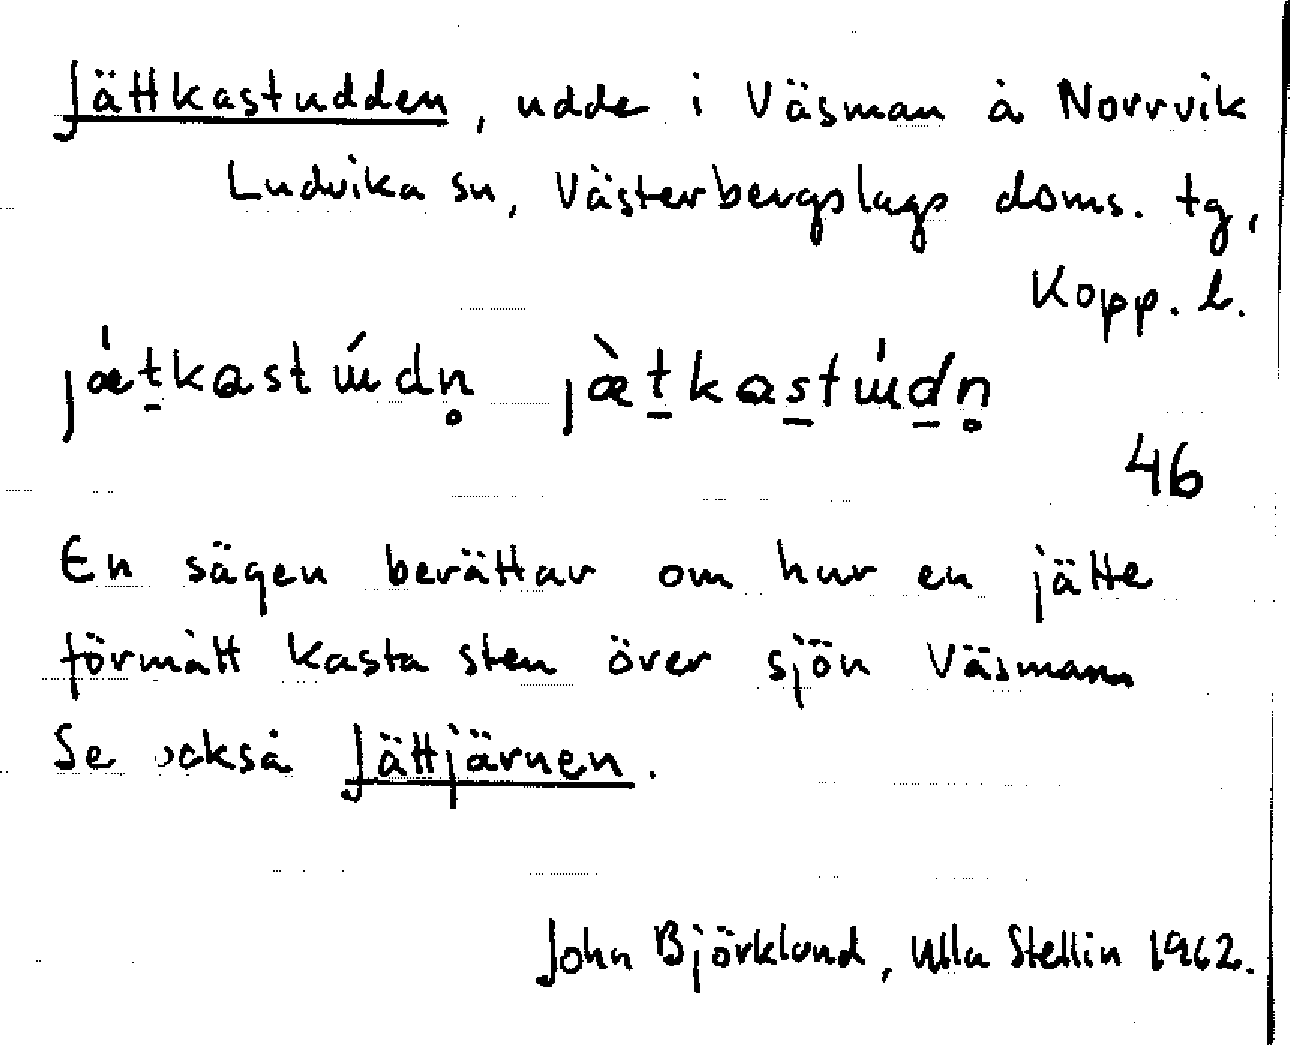 Jättkastudden, udde i Väsman å Norrvik
Ludvika sn, Västerbergslags doms. tg,
Kopp. l.
jǽt̠kastɯ́dn̥ jæ̀t̠kas̠tɯ́d̠n̥
46
En sägen berättar om hur en jätte
förmått kasta sten över sjön Väsman
Se också Jättjärnen.
John Björklund, Ulla Stellin 1962.